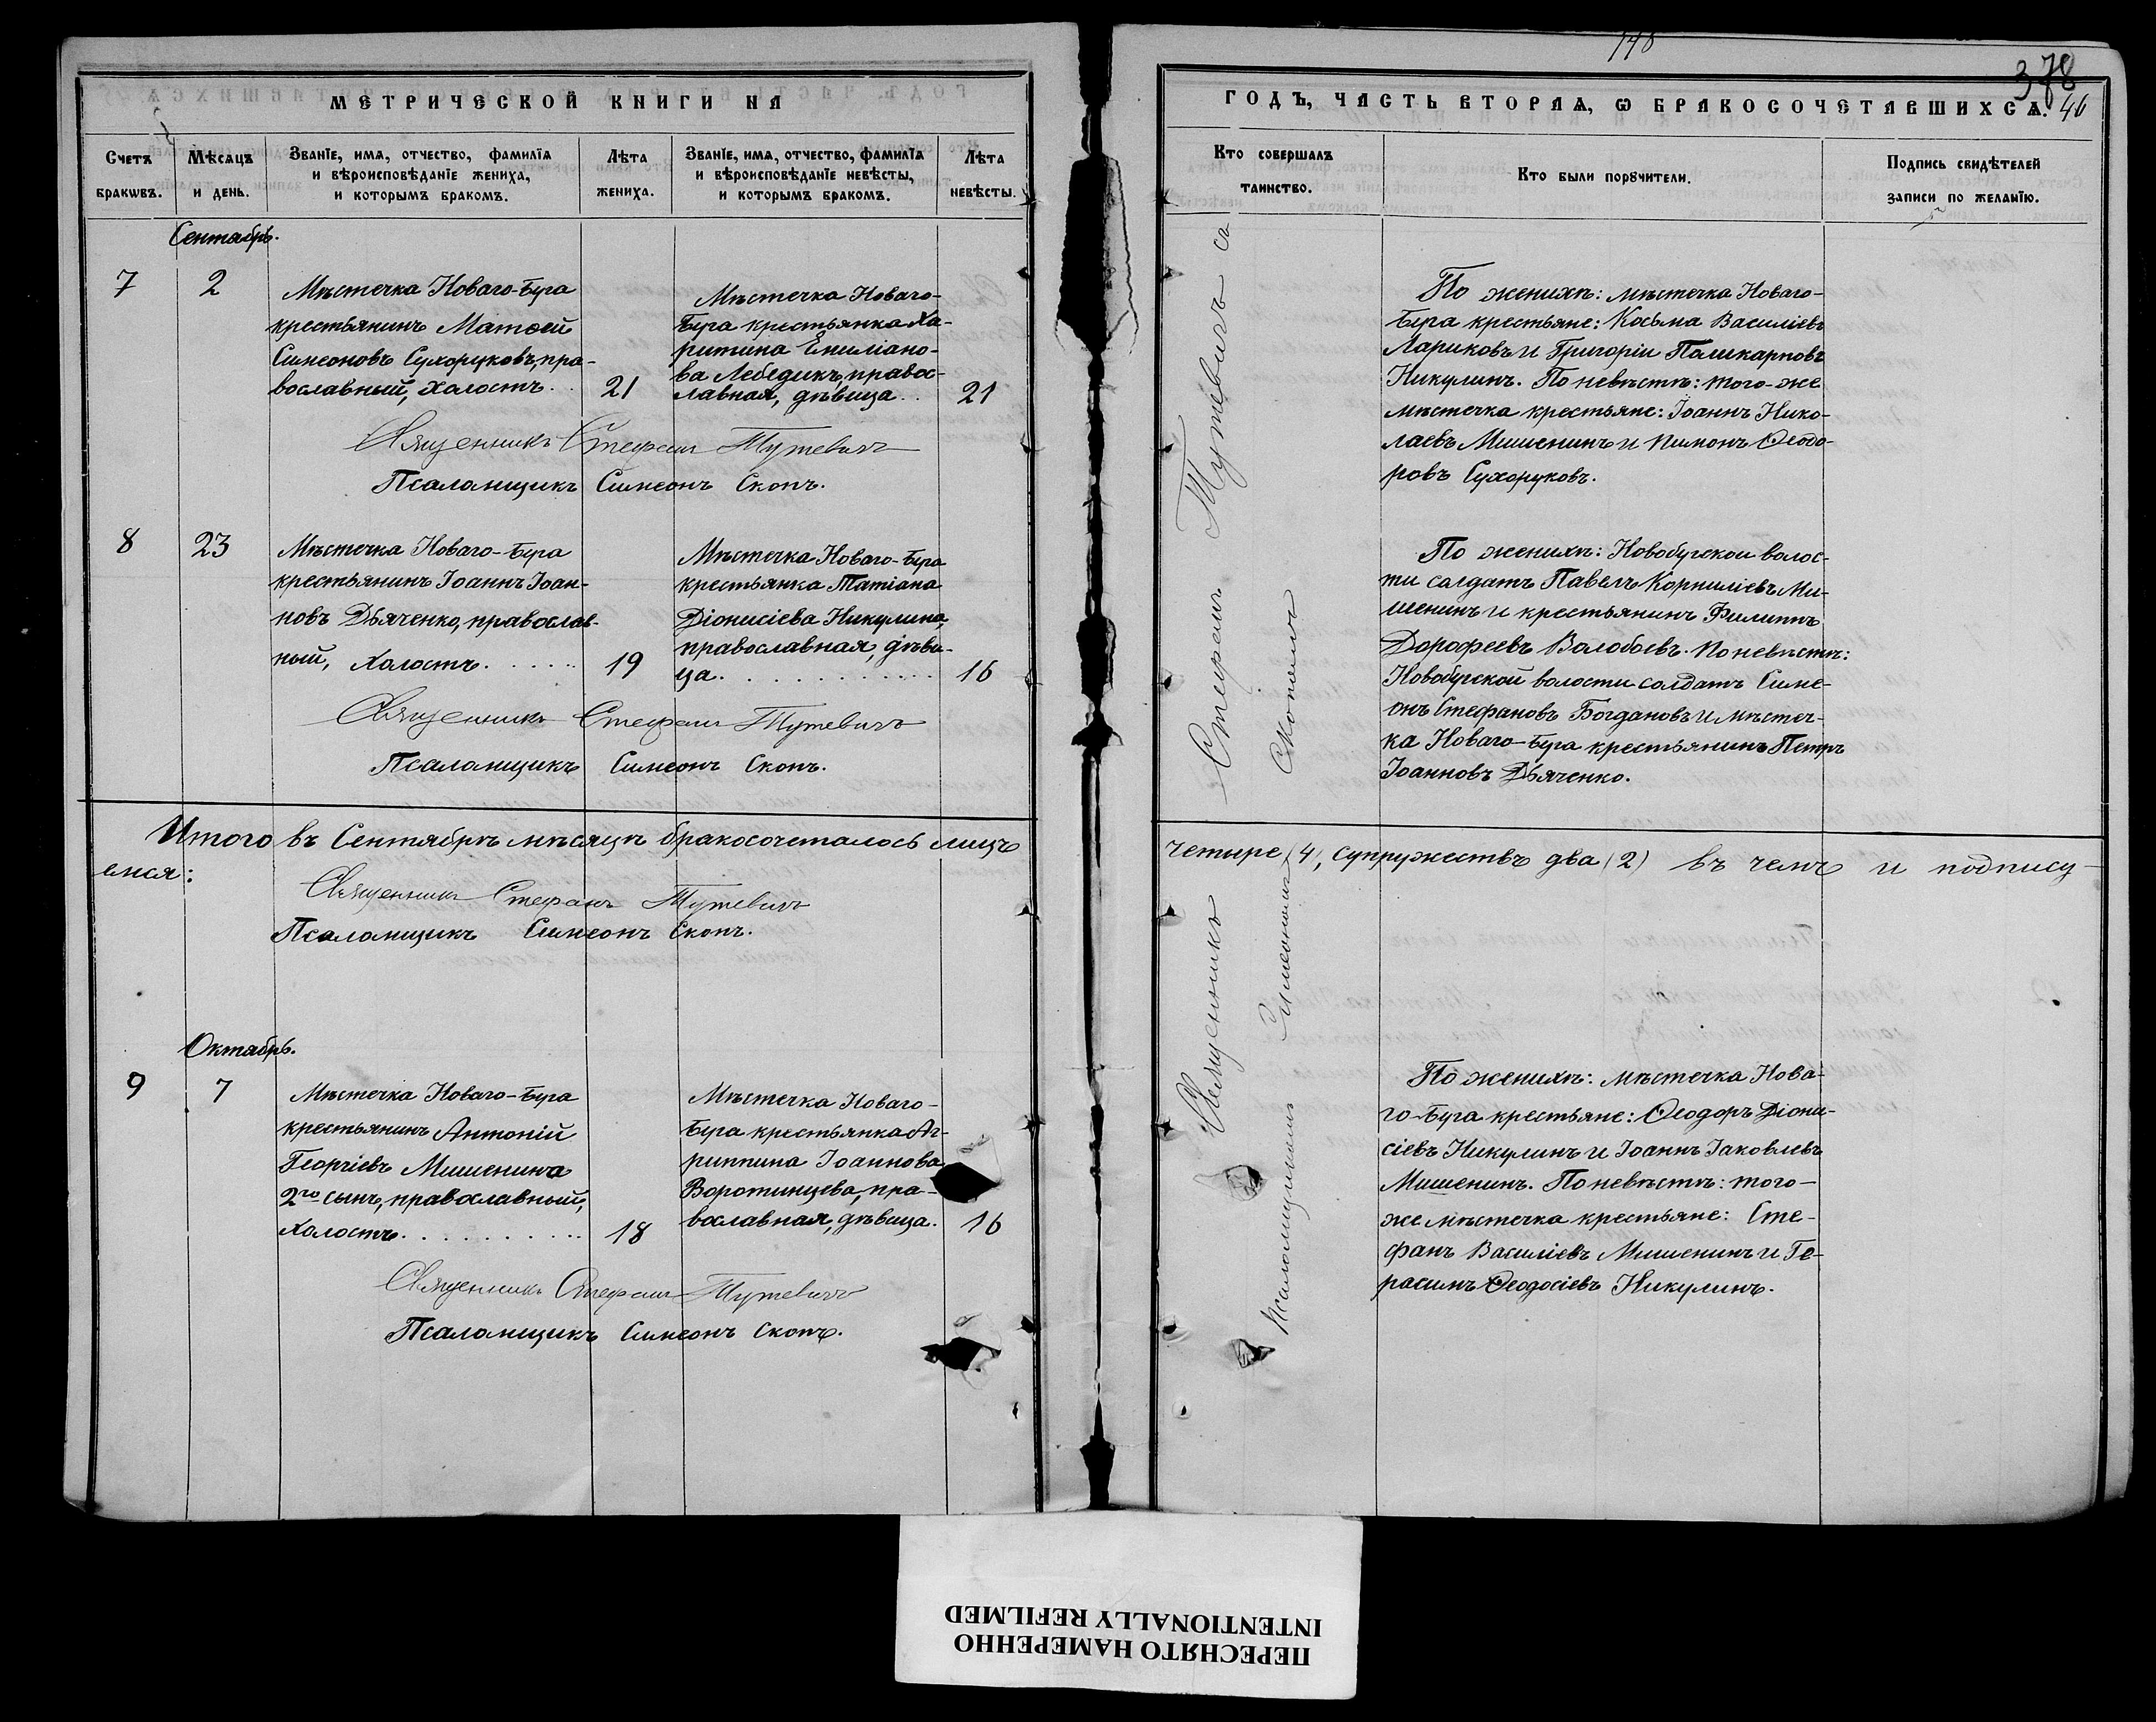 МЕТРИЧЕСКОЙ КНИГИ НА
Счетъ браковъ.
Мѣсяцъ и день.
Званїе, имя, отчество, фамилїя и вѣроисповѣданїе жениха, и которымъ бракомъ.
Лѣта жениха.
Званїе, имя, отчество, фамилїя и вѣроисповѣданїе невѣсты, и которымъ бракомъ.
Лѣта невѣсты.
Сентябрь.
7
2
Мѣстечка Новаго-Буга
крестьянинъ Матѳей
Симеоновъ Сухоруковъ, пра-
вославный, холостъ. .
21
Мѣстечка Новаго-
Буга крестьянка Ха-
ритина Емиліано-
ва Лебедикъ, правос-
лавная, дѣвица. .
21
Священникъ Стефанъ Тутевичъ
Псаломщикъ Симеонъ Скопъ.
8
23
Мѣстечка Новаго-Буга
крестьянинъ Іоаннъ Іоан-
новъ Дьяченко, православ-
ный, холостъ. . . . . .
19
Мѣстечка Новаго-Буга
крестьянка Татіана
Діонисіева Никулина,
православная, дѣви-
ца. . . . . . . . . . . .
16
Священникъ Стефанъ Тутевичъ
Псаломщикъ Симеонъ Скопъ.
Итого въ Сентябрѣ мѣсяцѣ бракосочеталось лицъ
емся:
Священникъ Стефанъ Тутевичъ
Псаломщикъ Симеонъ Скопъ.
Октябрь.
9
7
Мѣстечка Новаго-Буга
крестьянинъ Антоній
Георгіевъ Мишенина
2го сынъ, православный,
холостъ. . . . . . . . . . .
18
Мѣстечка Новаго-
Буга крестьянка Аг-
риппина Іоаннова
Воротинцева, пра-
вославная, дѣвица.
16
Священникъ Стефанъ Тутевичъ
Псаломщикъ Симеонъ Скопъ.
148
378
ГОДЪ, ЧАСТЬ ВТОРАЯ, Ѡ БРАКОСОЧЕТАВШИХСЯ. 46
Кто совершалъ таинство.
Кто были порꙋчители.
Подпись свидѣтелей записи по желанїю.
Священникъ Стефанъ Тутевичъ съ
псаломщикомъ Симеономъ Скопомъ
По женихѣ: мѣстечка Новаго-
Буга крестьяне: Косьма Василіевъ
Лариковъ и Григорій Поликарповъ
Никулинъ. По невѣстѣ: того-же
мѣстечка крестьяне: Іоаннъ Нико-
лаевъ Мишенинъ и Пимонъ Ѳеодо-
ровъ Сухоруковъ.
По женихѣ: Новобугской волос-
ти солдатъ Павелъ Корниліевъ Ми-
шенинъ и крестьянинъ Филиппъ
Дорофеевъ Волобоевъ. По невѣстѣ:
Новобугской волости солдатъ Симе-
онъ Стефановъ Богдановъ и мѣстеч-
ка Новаго-Буга крестьянинъ Петръ
Іоанновъ Дьяченко.
четыре (4), супружествъ два (2) въ чемъ и подпису-
По женихѣ: мѣстечка Нова-
го-Буга крестьяне: Ѳеодоръ Діони-
сіевъ Никулинъ и Іоаннъ Іаковлевъ
Мишенинъ. По невѣстѣ: того-
же мѣстечка крестьяне: Сте-
фанъ Василіевъ Мишенинъ и Ге-
расимъ Ѳеодосіевъ Никулинъ.
ПЕРЕСНЯТО НАМЕРЕННО
INTENTIONALLY REFILMED